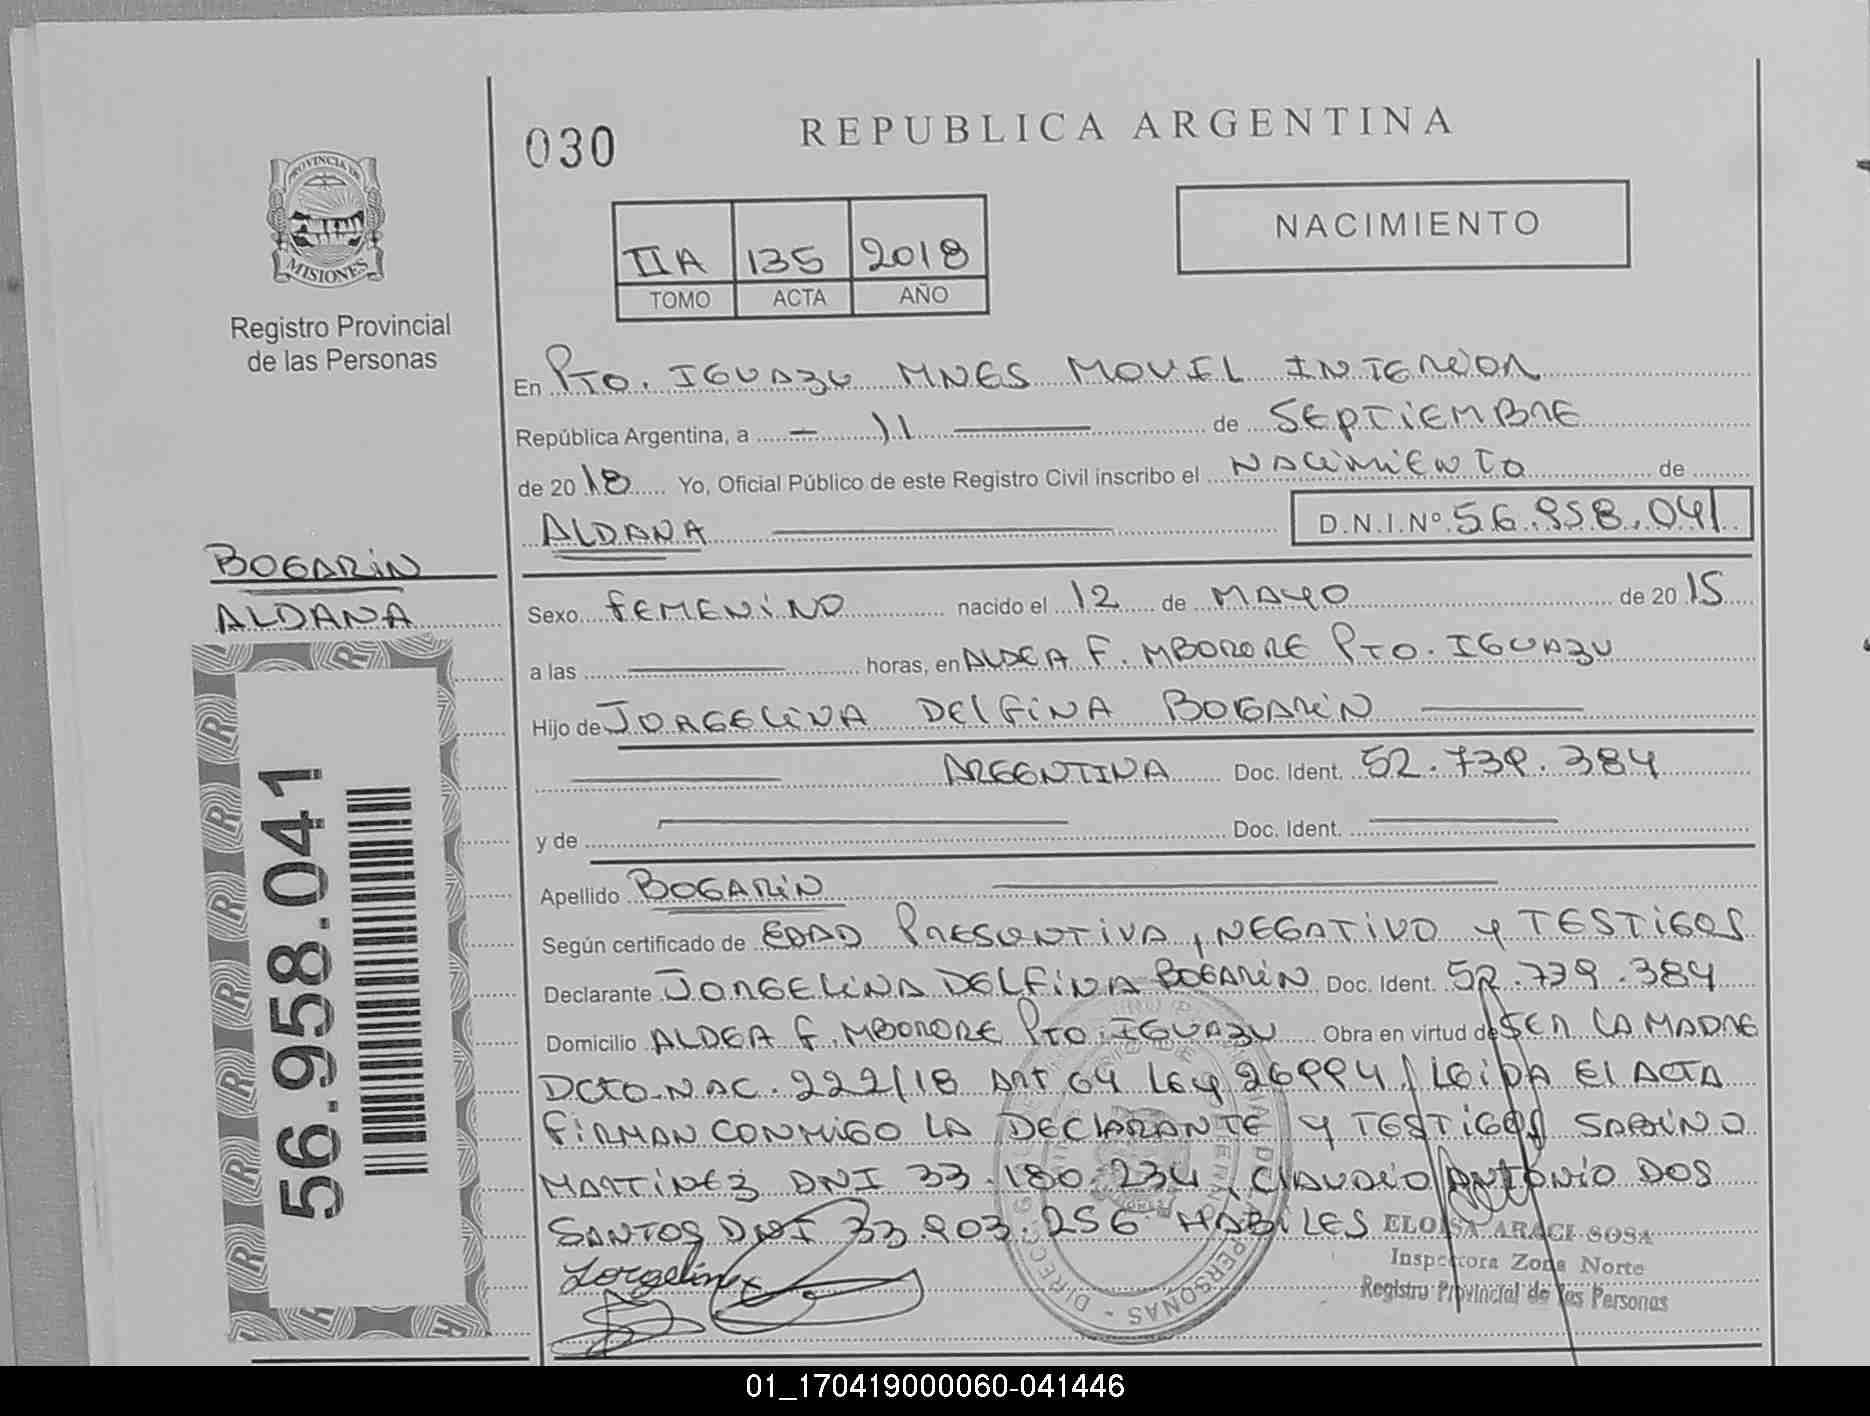 030
REPUBLICA ARGENTINA
PROVINCIA DE
MISIONES
Registro Provincial
de las Personas
IIA 135 2018
TOMO ACTA AÑO
NACIMIENTO
En Pto. IGUAZU MNES MOVIL INTERIOR
República Argentina, a - 11 de SEPTIEMBRE
de 2018 Yo, Oficial Público de este Registro Civil inscribo el NACIMIENTO de
ALDANA D.N.I. Nº 56.958.041
BOGARIN
ALDANA
Sexo FEMENINO nacido el 12 de MAYO de 2015
a las horas, en ALDEA F. MBORORE PTO. IGUAZU
Hijo de JORGELINA DELFINA BOGARIN
ARGENTINA Doc. Ident. 52.739.384
y de Doc. Ident.
Apellido BOGARIN
Según certificado de EDAD PRESUNTIVA, NEGATIVO Y TESTIGOS
Declarante JORGELINA DELFINA BOGARIN Doc. Ident. 52.739.384
Domicilio ALDEA F. MBORORE PTO. IGUAZU Obra en virtud de SER LA MADRE
DCTO. NAC. 222/18 ART 64 Ley 26994 / LEIDA EL ACTA
FIRMAN CONMIGO LA DECLARANTE Y TESTIGOS SABINO
MARTINEZ DNI 33.180.234, CLAUDIO ANTONIO DOS
SANTOS DNI 33.903.256 HABILES
Jorgelina
ELOISA ARACI SOSA
Inspectora Zona Norte
Registro Provincial de las Personas
56.958.041
01_170419000060-041446